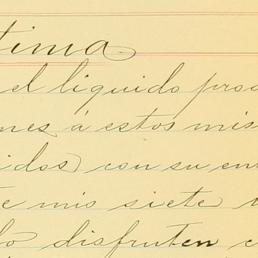 tima
el líquido prod
nes á estos mis
idos con su en
te mis siete
lo disfruten c